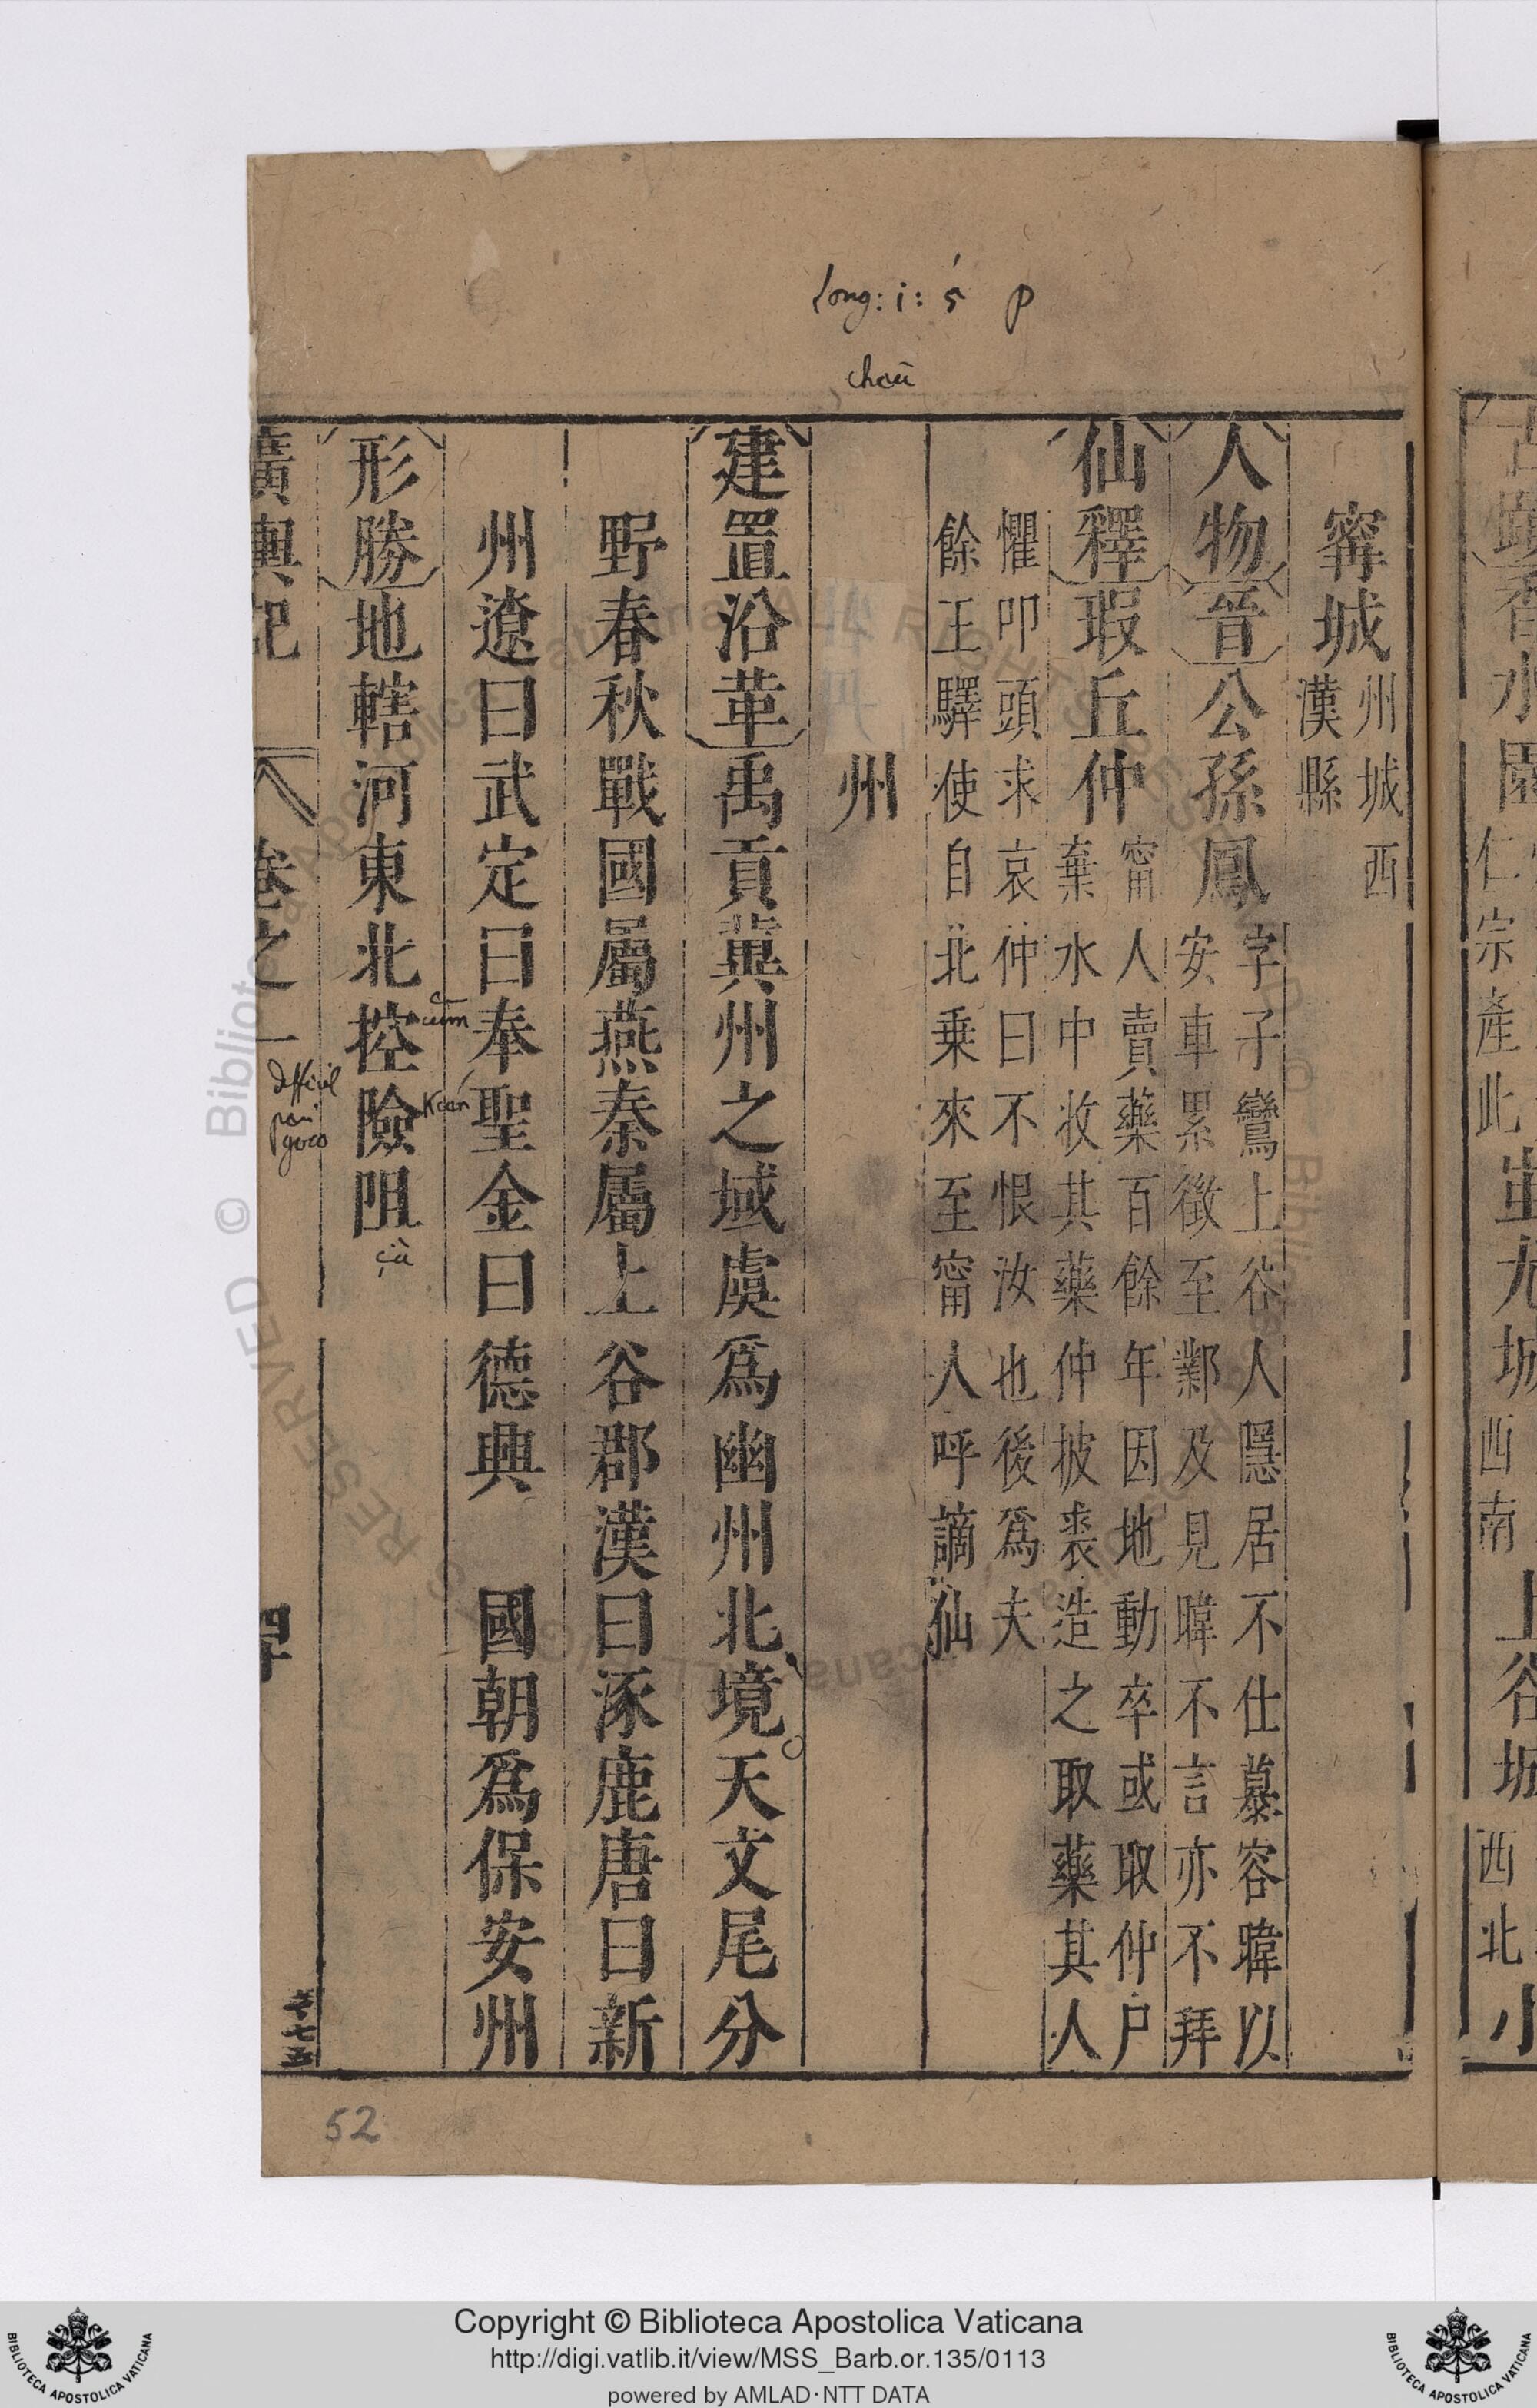 long: i: 5 p
chaū
寗城 州城西 漢縣
人物 晉 公孫鳳 字子鸞上谷人隱居不仕慕容暐以
安車累徵至鄴及見暐不言亦不拜
仙釋 瑕丘仲 甯人賣藥百餘年因地動卒或取仲户
棄水中收其藥仲披裘造之取藥其人
懼叩頭求哀仲曰不恨汝也後爲夫
餘王驛使自北乗來至甯人呼謫仙
州
建置沿革 禹貢冀州之域虞爲幽州北境天文尾分
野春秋戰國屬燕秦屬上谷郡漢曰涿鹿唐曰新
州遼曰武定曰奉聖金曰德興 國朝爲保安州
形勝 地轄河東北控險阻
cūm
Kaán
çù
廣輿記 卷之一
difficil
52
古蹟 香水園
仁宗產此
蚩尤城
西南
上谷城
西北
小
Copyright © Biblioteca Apostolica Vaticana
http://digi.vatlib.it/view/MSS_Barb.or.135/0113
powered by AMLAD·NTT DATA
BIBLIOTECA APOSTOLICA VATICANA
BIBLIOTECA APOSTOLICA VATICANA